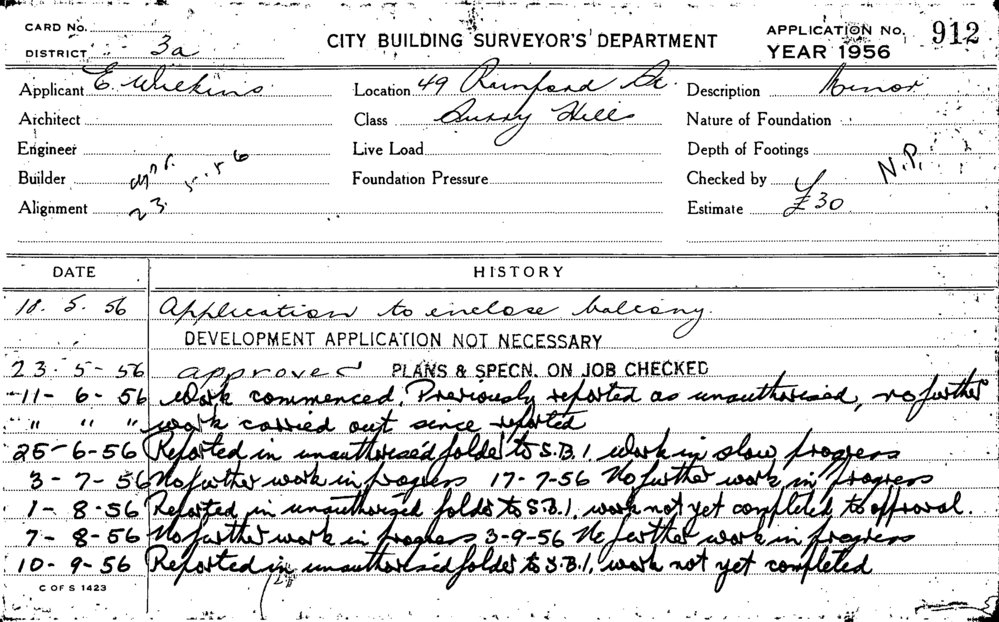 CARD No.
DISTRICT 3a
CITY BUILDING SURVEYOR'S DEPARTMENT
APPLICATION No. 912
YEAR 1956
Applicant E. Wilkins
Location 49 Rainford St.
Description Minor
Architect
Class Surry Hills
Nature of Foundation
Engineer
Live Load
Depth of Footings
Builder
Foundation Pressure
Checked by N.P.
Alignment 23. 5. 56
Estimate £30
DATE HISTORY
18. 5. 56 Application to enclose balcony.
DEVELOPMENT APPLICATION NOT NECESSARY
23. 5- 56 approved PLANS & SPECN. ON JOB CHECKED
-11- 6- 56 Work commenced. Previously reported as unauthorised, no further
" " " work carried out since reported
25-6-56 Reported in unauthorised folder to S.B.I. work in slow progress
3-7-56 No further work in progress 17-7-56 No further work in progress
1-8-56 Reported in unauthorised folder to S.B.I. work not yet completed to approval.
7-8-56 No further work in progress 3-9-56 No further work in progress
10-9-56 Reported in unauthorised folder to S.B.I. work not yet completed
C OF S 1423